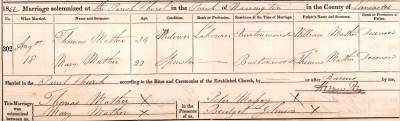 Marriage solemnized at the Parish Church in the Parish of Warrington in the County of Lancaster
No.
When Married.
Name and Surname.
Age.
Condition.
Rank or Profession.
Residence at the Time of Marriage.
Father's Name and Surname.
302
Augst
18
Thomas Mather
24
Widower
Labourer
Burtonwood
William Mather
Mary Mather
22
Spinster
Burtonwood
Thomas Mather
Married in the Parish Church according to the Rites and Ceremonies of the Established Church, by after Banns
This Marriage was solemnized between us,
Thomas Mather X
Mary Mather X
In the Presence of us,
Peter X
Bridget Johnson X